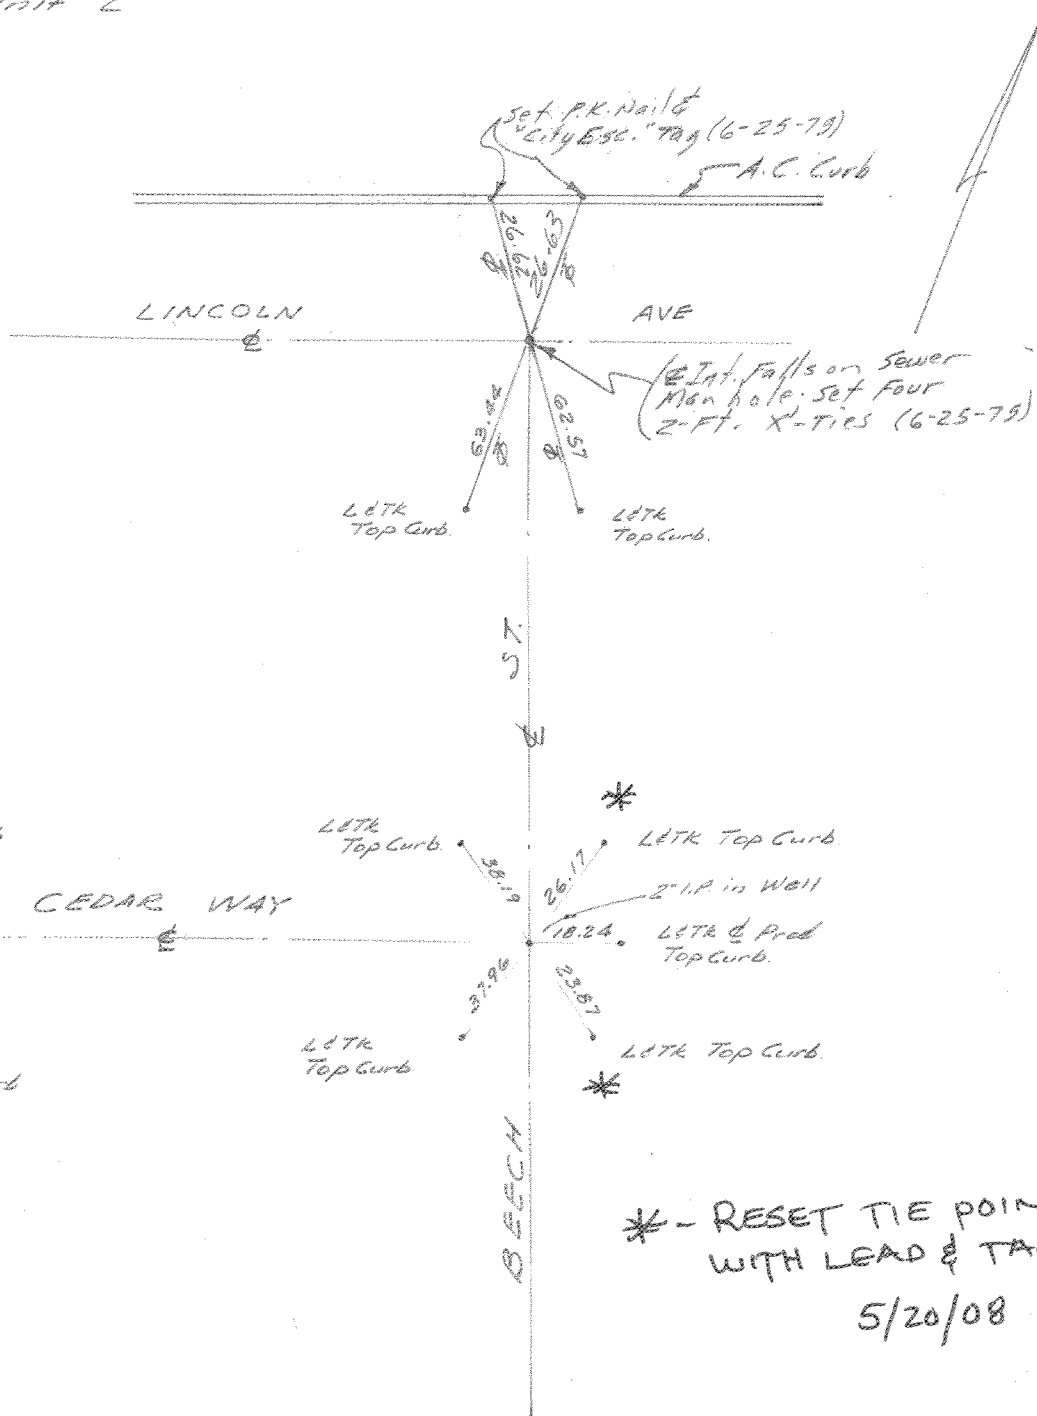 Set P.K. Nail &
"City Esc." Tag (6-25-75)
A.C. Curb
26.29
26.63
LINCOLN AVE
℄
℄ Int. Falls on Sewer
Manhole. Set Four
2-Ft. 'X'-Ties (6-25-75)
63.42
62.57
L&TK
Top Curb.
L&TK
Top Curb.
ST.
℄
*
L&TK
Top Curb.
L&TK Top Curb.
38.19
26.17
2" I.P. in Well
CEDAR WAY
℄
18.24
L&TK ℄ Prod
Top Curb.
37.96
23.87
L&TK
Top Curb
L&TK Top Curb.
*
BEECH
* - RESET TIE POIN
WITH LEAD & TA
5/20/08